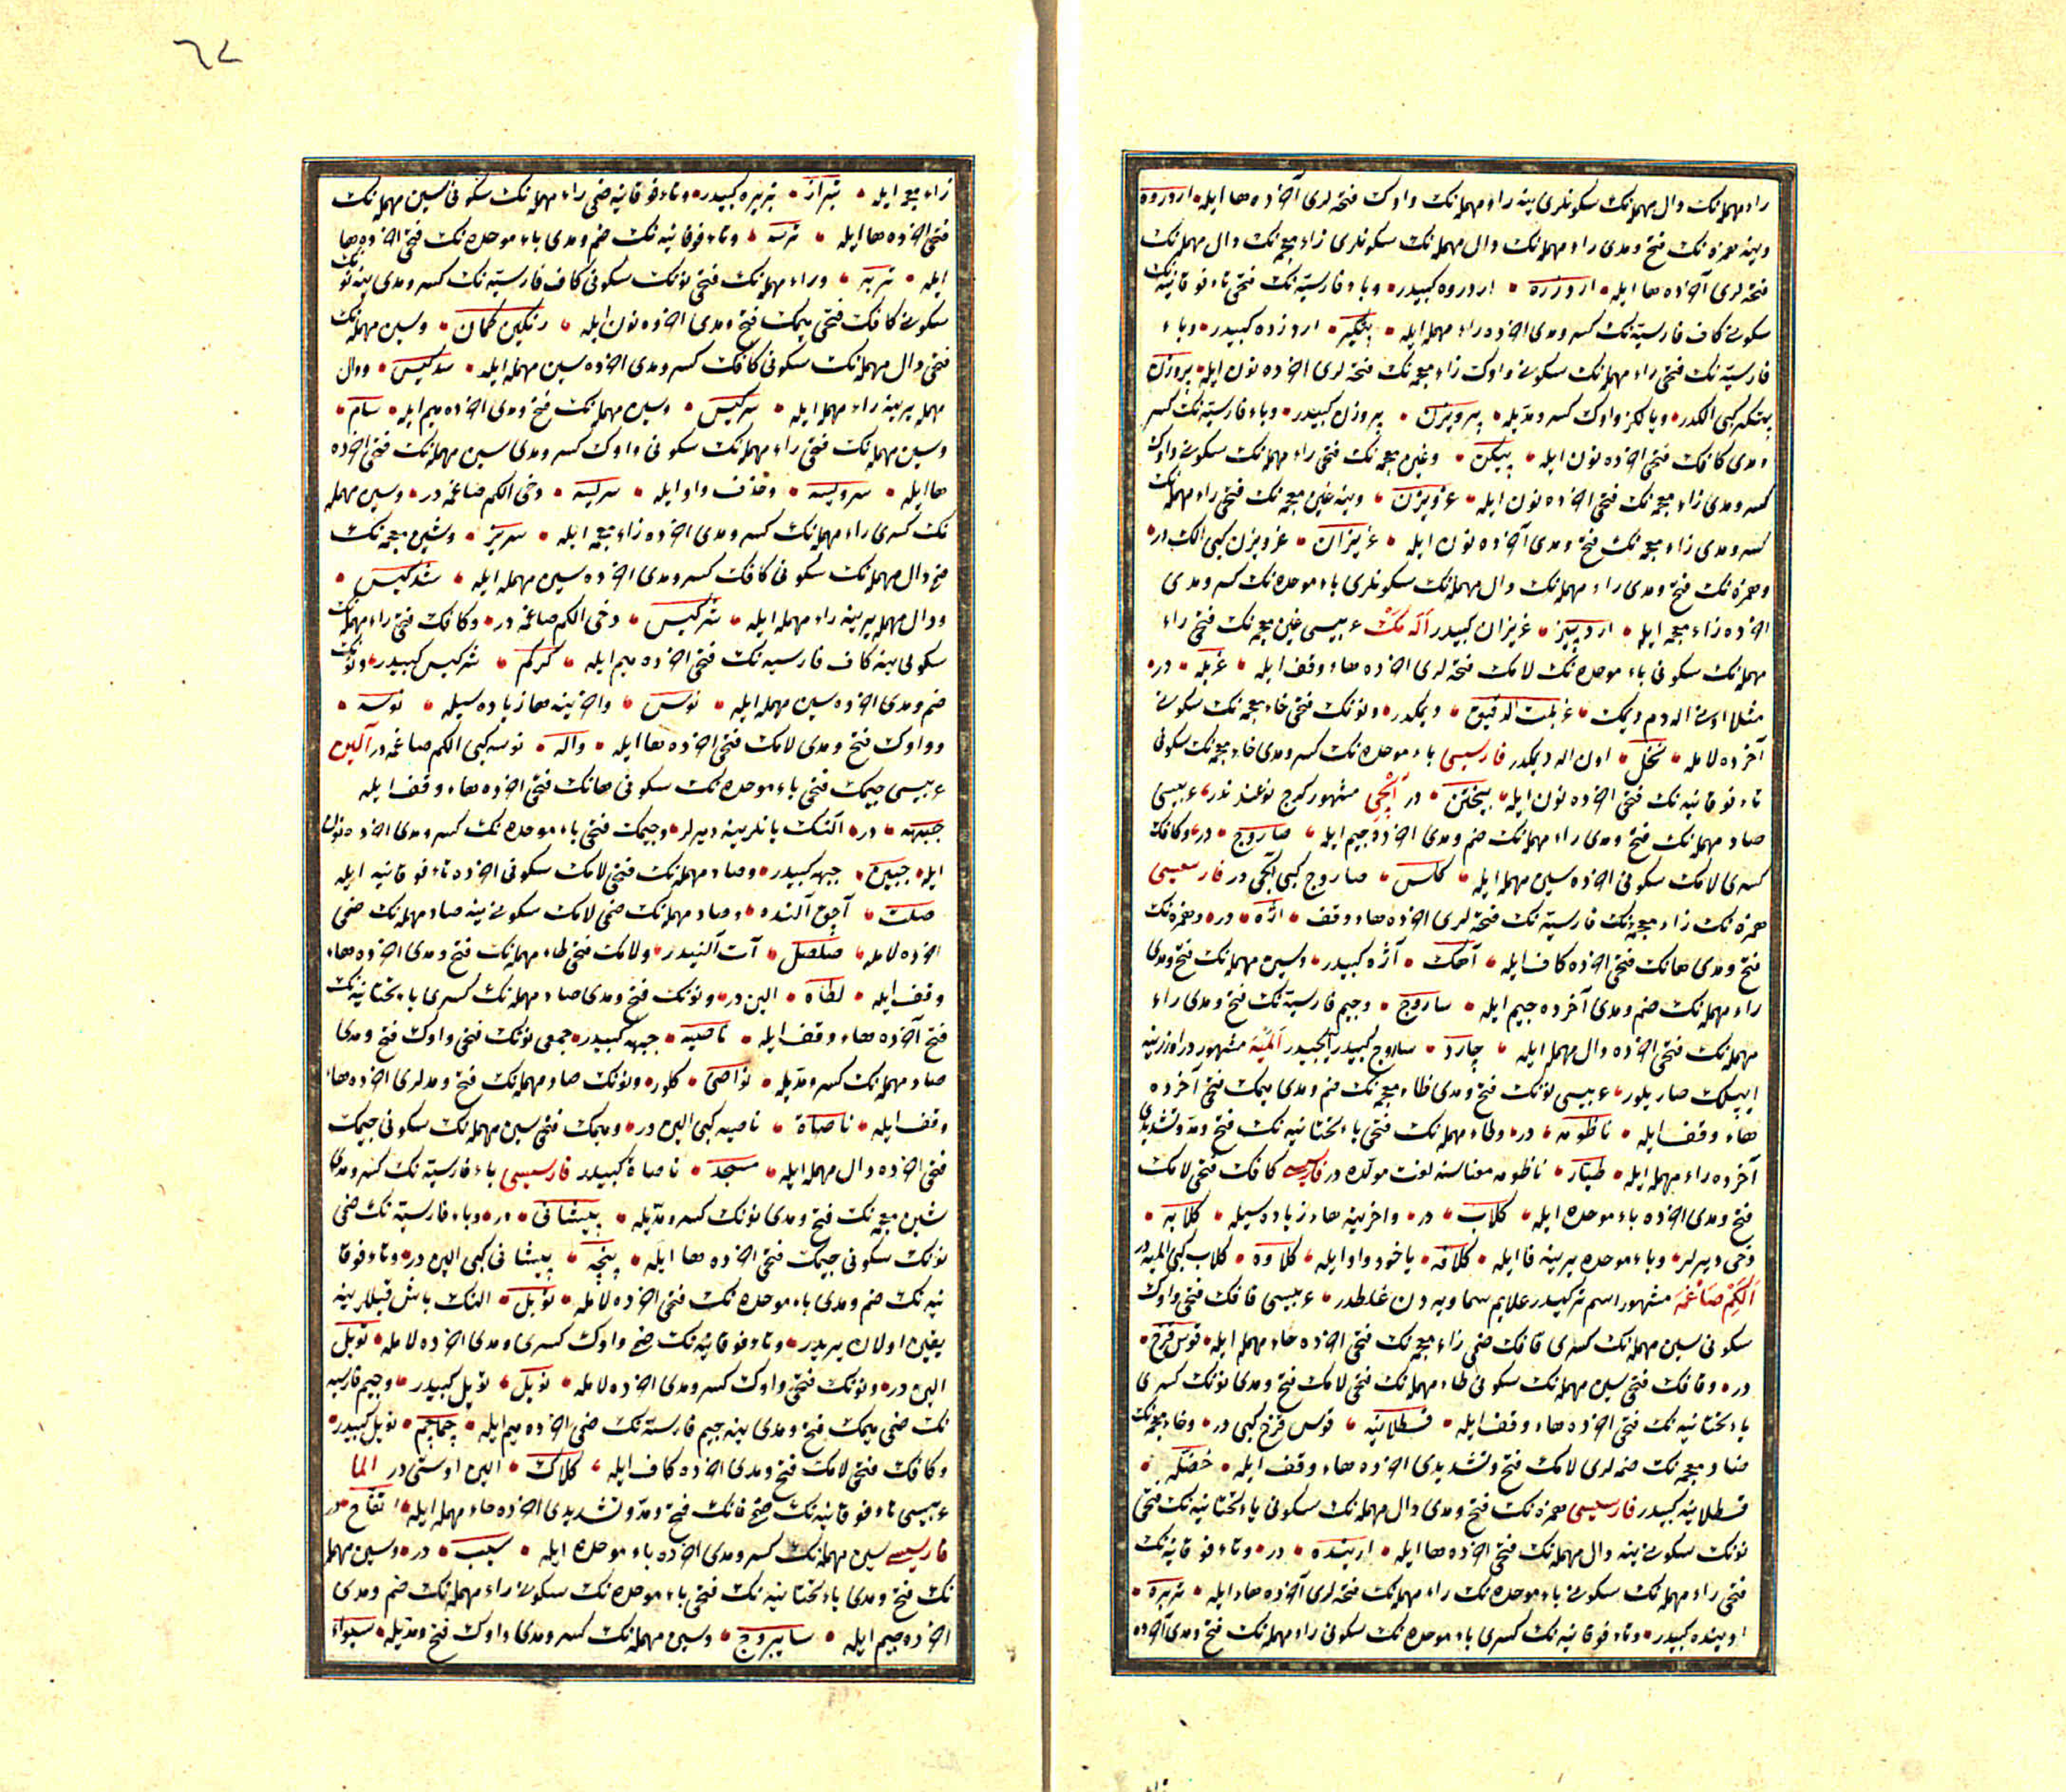 راء مهمله‌نك دال مهمله‌نك سكونلرى ينه راء مهمله‌نك واوك فتحه‌لرى آخرده ها ايله اردروه
وينه همزه‌نك فتح ومدى راء مهمله‌نك دال مهمله‌نك سكونلرى زاء معجمه‌نك دال مهمله‌نك
فتحه‌لرى آخرده ها ايله اردزره اردروه كبيدر وباء فارسيه‌نك فتحى تاء فوقانيه‌نك
سكونى كاف فارسيه‌نك كسر ومدى اخرده راء مهمله ايله پتگير اردزده كبيدر وباء
فارسيه‌نك فتحى راء مهمله‌نك سكونى واوك زاء معجمه‌نك فتحه‌لرى اخرده نون ايله پروزن
پتكير كبى الكدر ويالكز واوك كسر ومديله پرويزن پروزن كبيدر وباء فارسيه‌نك كسر
ومدى كافك فتحى اخرده نون ايله پيكن وغين معجمه‌نك فتحى راء مهمله‌نك سكونى واوك
كسر ومدى زاء معجمه‌نك فتحى اخرده نون ايله غرويزن وينه غين معجمه‌نك فتحى راء مهمله‌نك
كسر ومدى زاء معجمه‌نك فتح ومدى آخرده نون ايله غريزان غرويزن كبى الكدر
وهمزه‌نك فتح ومدى راء مهمله‌نك دال مهمله‌نك سكونلرى باء موحده‌نك كسر ومدى
اخرده زاء معجمه ايله اردبيز غريزان كبيدر اله مك عربيسى غين معجمه‌نك فتحى راء
مهمله‌نك سكونى باء موحده‌نك لامك فتحه‌لرى اخرده هاء وقف ايله غربله در
مثلا اونى اله‌دم ديمك غربلت الدقيق ديمكدر ونونك فتحى خاء معجمه‌نك سكونى
آخرده لامله نخل اون اله ديمكدر فارسيسى باء موحده‌نك كسر ومدى خاء معجمه‌نك سكونى
تاء فوقانيه‌نك فتحى اخرده نون ايله بيختن در الچى مشهور كرج نوعندندر عربيسى
صاد مهمله‌نك فتح ومدى راء مهمله‌نك ضم ومدى اخرده جيم ايله صاروج در وكافك
كسرى لامك سكونى اخرده سين مهمله ايله كلس صاروج كبى الچى در فارسيسى
همزه‌نك زاء معجمه‌نك فارسيه‌نك فتحه‌لرى اخرده هاء وقف اژه در وهمزه‌نك
فتح ومدى هانك فتحى اخرده كاف ايله آهك آژه كبيدر وسين مهمله‌نك فتح ومدى
راء مهمله‌نك ضم ومدى آخرده جيم ايله ساروج وجيم فارسيه‌نك فتح ومدى راء
مهمله‌نك فتحى اخرده دال مهمله ايله چارد ساروج كبيدر الچيدر المیه مشهوردر اوزرينه
ايپلك صاريلور عربيسى نونك فتح ومدى ظاء معجمه‌نك ضم ومدى ميمك فتحى آخرده
هاء وقف ايله ناظومه در وطاء مهمله‌نك فتحى ياء تحتانيه‌نك فتح ومد وتشديدى
آخرده راء مهمله ايله طيّار ناظومه معناسنه لغت مولده‌در فارسيسى كافك فتحى لامك
فتح ومدى اخرده باء موحده ايله كلاب در واخرينه هاء زياده‌سيله كلابه
دخى ديرلر وباء موحده يرينه فا ايله كلافه ياخود واو ايله كلاوه كلاب كبى المیه‌در
الكم صاغمه مشهور اسم تركيدر علايم سماويه‌دن غلطدر عربيسى قافك فتحى واوك
سكونى سين مهمله‌نك كسرى قافك ضمى زاء معجمه‌نك فتحى اخرده حاء مهمله ايله قوس قزح
در وقافك فتحى سين مهمله‌نك سكونى طاء مهمله‌نك فتحى لامك فتح ومدى نونك كسرى
ياء تحتانيه‌نك فتحى اخرده هاء وقف ايله قسطلانيه قوس قزح كبى در وخاء معجمه‌نك
ضاد معجمه‌نك ضمه‌لرى لامك فتح وتشديدى اخرده هاء وقف ايله خضلّه
قسطلانيه كبيدر فارسيسى همزه‌نك فتح ومدى دال مهمله‌نك سكونى ياء تحتانيه‌نك فتحى
نونك سكونى ينه دال مهمله‌نك فتحى اخرده ها ايله ادينده در وتاء فوقانيه‌نك
فتحى راء مهمله‌نك سكونى باء موحده‌نك راء مهمله‌نك فتحه‌لرى آخرده هاء ايله تربره
ادينده كبيدر وتاء فوقانيه‌نك كسرى باء موحده‌نك سكونى راء مهمله‌نك فتح ومدى آخرده
٦٧
زاء معجمه ايله تبراز تربره كبيدر وتاء فوقانيه ضمى راء مهمله‌نك سكونى سين مهمله‌نك
فتحى اخرده ها ايله ترسه وتاء فوقانيه‌نك ضم ومدى باء موحده‌نك فتحى اخرده ها
ايله توبه وراء مهمله‌نك فتحى نونك سكونى كاف فارسيه‌نك كسر ومدى ينه نونك
سكونى كافك فتحى ميمك فتح ومدى اخرده نون ايله رنگين كمان وسين مهمله‌نك
فتحى دال مهمله‌نك سكونى كافك كسر ومدى اخرده سين مهمله ايله سدكيس ودال
مهمله يرينه راء مهمله ايله سركيس وسين مهمله‌نك فتح ومدى اخرده ميم ايله سام
وسين مهمله‌نك فتحى راء مهمله‌نك سكونى واوك كسر ومدى سين مهمله‌نك فتحى اخرده
ها ايله سرويسه وحذف واو ايله سريسه دخى الكم صاغمه‌در وسين مهمله
نك كسرى راء مهمله‌نك كسر ومدى اخرده زاء معجمه ايله سريز وشين معجمه‌نك
فتح دال مهمله‌نك سكونى كافك كسر ومدى اخرده سين مهمله ايله شدكيس
ودال مهمله يرينه راء مهمله ايله شركيس دخى الكم صاغمه‌در وكافك فتحى راء مهمله‌نك
سكونى ينه كاف فارسيه‌نك فتحى اخرده ميم ايله كرگم شركيس كبيدر ونونك
ضم ومدى اخرده سين مهمله ايله نوس واخرينه ها زياده‌سيله نوسه
وواوك فتح ومدى لامك فتحى اخرده ها ايله واله نوسه كبى الكم صاغمه‌در آلين
عربيسى جيمك فتحى باء موحده‌نك سكونى هانك فتحى اخرده هاء وقف ايله
جبهه در آلنك يانلرينه ديرلر وجيمك فتحى باء موحده‌نك كسر ومدى اخرده نون
ايله جبين جبهه كبيدر وصاد مهمله‌نك فتحى لامك سكونى اخرده تاء فوقانيه ايله
صلت آچق آلنده وصاد مهمله‌نك ضمى لامك سكونى ينه صاد مهمله‌نك ضمى
اخرده لامله صلصل آت آلنيدر ولامك فتحى طاء مهمله‌نك فتح ومدى اخرده هاء
وقف ايله لطاه الين در ونونك فتح ومدى صاد مهمله‌نك كسرى ياء تحتانيه‌نك
فتح آخرده هاء وقف ايله ناصيه جبهه كبيدر جمعى نونك فتحى واوك فتح ومدى
صاد مهمله‌نك كسر ومديله نواصى كلور ونونك صاد مهمله‌نك فتح ومدلرى اخرده هاء
وقف ايله ناصاة ناصيه كبى الين در وميمك فتحى سين مهمله‌نك سكونى جيمك
فتحى اخرده دال مهمله ايله مسجد ناصاة كبيدر فارسيسى باء فارسيه‌نك كسر ومدى
شين معجمه‌نك فتح ومدى نونك كسر ومديله پيشانى در وباء فارسيه‌نك ضمى
نونك سكونى جيمك فتحى اخرده ها ايله پنجه پيشانى كبى الين در وتاء فوقا
نيه‌نك ضم ومدى باء موحده‌نك فتحى اخرده لامله توبل النك باش قيللرينه
يقين اولان يريدر وتاء فوقانيه‌نك فتح واوك كسرى ومدى اخرده لامله تويل
الين در ونونك فتحى واوك كسر ومدى اخرده لامله نويل تويل كبيدر وجيم فارسيه
نك ضمى ميمك فتح ومدى ينه جيم فارسيه‌نك ضمى اخرده ميم ايله چماچم نويل كبيدر
وكافك فتحى لامك فتح ومدى اخرده كاف ايله كلاك الين اوستى در الما
عربيسى تاء فوقانيه‌نك ضمى فانك فتح ومد وتشديدى اخرده حاء مهمله ايله تفاح در
فارسيسى سين مهمله‌نك كسر ومدى اخرده باء موحده ايله سيب در وسين مهمله
نك فتح ومدى ياء تحتانيه‌نك فتحى باء موحده‌نك سكونى راء مهمله‌نك ضم ومدى
اخرده جيم ايله سايبروج وسين مهمله‌نك كسر ومدى واوك فتح ومديله سيواء